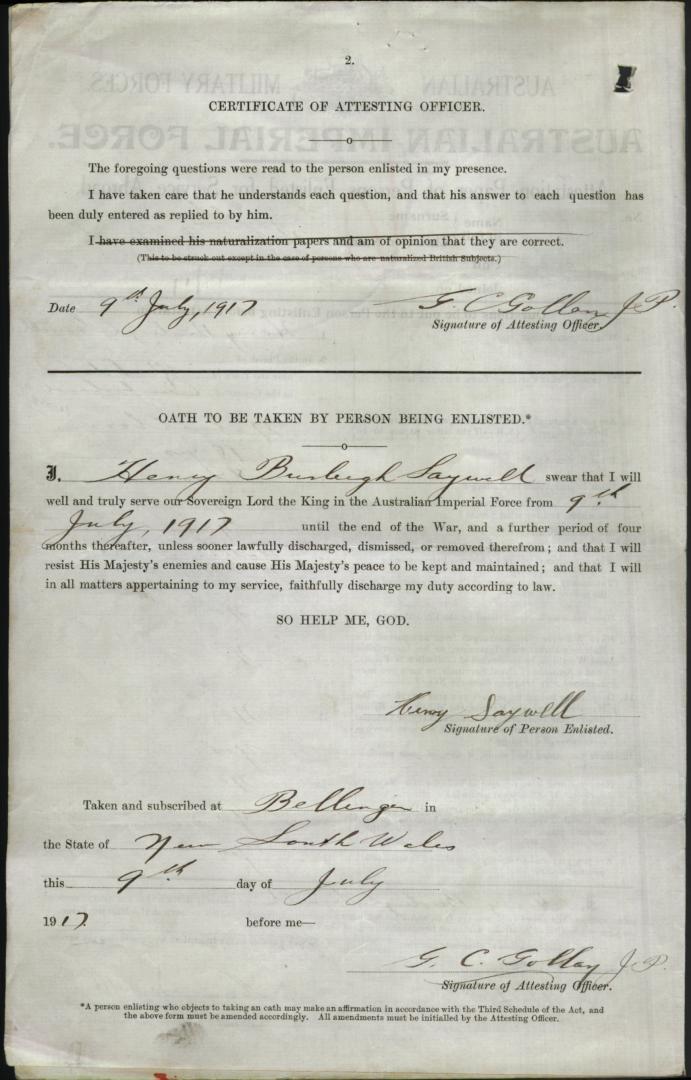 2.
CERTIFICATE OF ATTESTING OFFICER.
The foregoing questions were read to the person enlisted in my presence.
I have taken care that he understands each question, and that his answer to each question has
been duly entered as replied to by him.
I have examined his naturalization papers and am of opinion that they are correct.
(This to be struck out except in the case of persons who are naturalized British Subjects.)
Date 9th July, 1917 G. C. J.P.
Signature of Attesting Officer.
OATH TO BE TAKEN BY PERSON BEING ENLISTED.*
I, Henry Burleigh Saywell swear that I will
well and truly serve our Sovereign Lord the King in the Australian Imperial Force from 9th
July, 1917 until the end of the War, and a further period of four
months thereafter, unless sooner lawfully discharged, dismissed, or removed therefrom; and that I will
resist His Majesty's enemies and cause His Majesty's peace to be kept and maintained; and that I will
in all matters appertaining to my service, faithfully discharge my duty according to law.
SO HELP ME, GOD.
Henry Saywell
Signature of Person Enlisted.
Taken and subscribed at Bellingen in
the State of New South Wales
this 9th day of July
1917 before me—
G. C. J.P.
Signature of Attesting Officer.
*A person enlisting who objects to taking an oath may make an affirmation in accordance with the Third Schedule of the Act, and
the above form must be amended accordingly. All amendments must be initialled by the Attesting Officer.